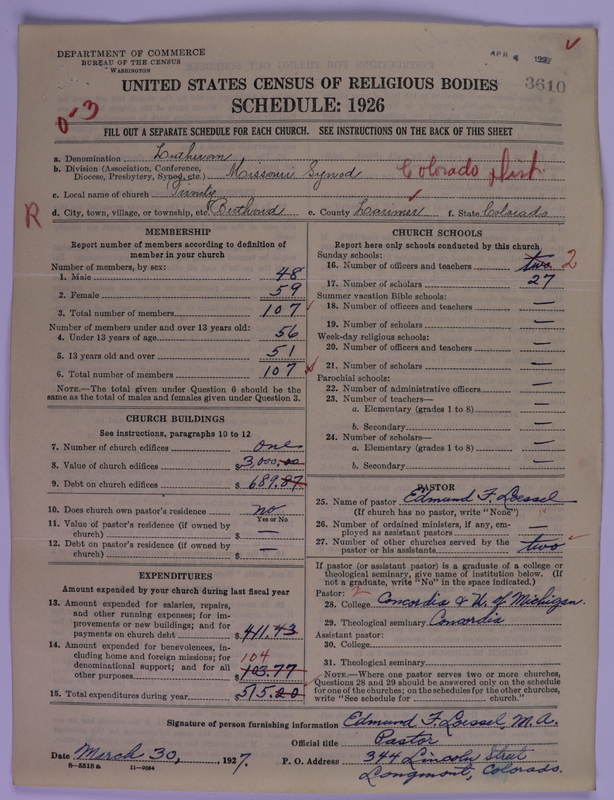 DEPARTMENT OF COMMERCE
BUREAU OF THE CENSUS
WASHINGTON
APR 4 1927
3610
UNITED STATES CENSUS OF RELIGIOUS BODIES
SCHEDULE: 1926
0-3
FILL OUT A SEPARATE SCHEDULE FOR EACH CHURCH. SEE INSTRUCTIONS ON THE BACK OF THIS SHEET
a. Denomination Lutheran
b. Division (Association, Conference, Diocese, Presbytery, Synod, etc.) Missouri Synod Colorado Dist.
c. Local name of church Trinity
R
d. City, town, village, or township, etc. Berthoud e. County Larimer f. State Colorado
MEMBERSHIP
Report number of members according to definition of
member in your church
Number of members, by sex:
1. Male 48
2. Female 59
3. Total number of members 107
Number of members under and over 13 years old:
4. Under 13 years of age 56
5. 13 years old and over 51
6. Total number of members 107
NOTE.—The total given under Question 6 should be
same as the total of males and females given under Question 3.
CHURCH BUILDINGS
See instructions, paragraphs 10 to 12
7. Number of church edifices one
8. Value of church edifices $3,000.00
9. Debt on church edifices $689.87
10. Does church own pastor's residence no
Yes or No
11. Value of pastor's residence (if owned by
church) $ —
12. Debt on pastor's residence (if owned by
church) $ —
EXPENDITURES
Amount expended by your church during last fiscal year
13. Amount expended for salaries, repairs,
and other running expenses; for im-
provements or new buildings; and for
payments on church debt $411.43
14. Amount expended for benevolences, in-
cluding home and foreign missions; for
denominational support; and for all
other purposes $103.77
104
15. Total expenditures during year $515.20
CHURCH SCHOOLS
Report here only schools conducted by this church
Sunday schools:
16. Number of officers and teachers two 2
17. Number of scholars 27
Summer vacation Bible schools:
18. Number of officers and teachers —
19. Number of scholars —
Week-day religious schools:
20. Number of officers and teachers —
21. Number of scholars —
Parochial schools:
22. Number of administrative officers —
23. Number of teachers—
a. Elementary (grades 1 to 8) —
b. Secondary —
24. Number of scholars—
a. Elementary (grades 1 to 8) —
b. Secondary —
PASTOR
25. Name of pastor Edmund F. Loessel
(If church has no pastor, write "None")
26. Number of ordained ministers, if any, em-
ployed as assistant pastors —
27. Number of other churches served by the
pastor or his assistants two
If pastor (or assistant pastor) is a graduate of a college or
theological seminary, give name of institution below. (If
not a graduate, write "No" in the space indicated.)
Pastor: 2
28. College Concordia & U. of Michigan.
29. Theological seminary Concordia
Assistant pastor:
30. College
31. Theological seminary
NOTE.—Where one pastor serves two or more churches,
Questions 28 and 29 should be answered only on the schedule
for one of the churches; on the schedules for the other churches,
write "See schedule for church."
Signature of person furnishing information Edmund F. Loessel, M.A.
Official title Pastor
Date March 30, 1927. P. O. Address 344 Lincoln Street
8-5518 a 11-9064
Longmont, Colorado.